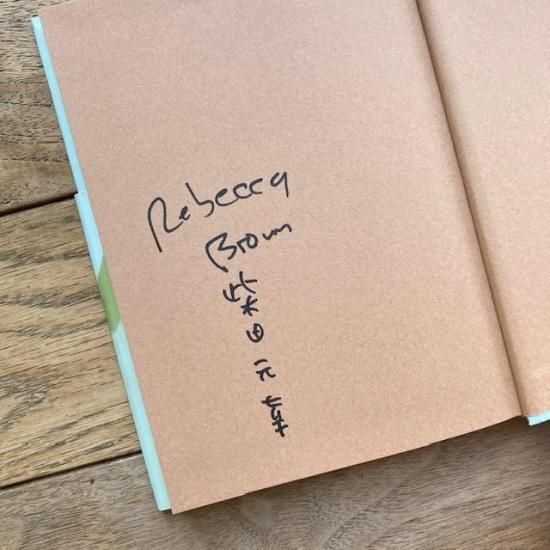 Rebecca
Brown
柴田元幸